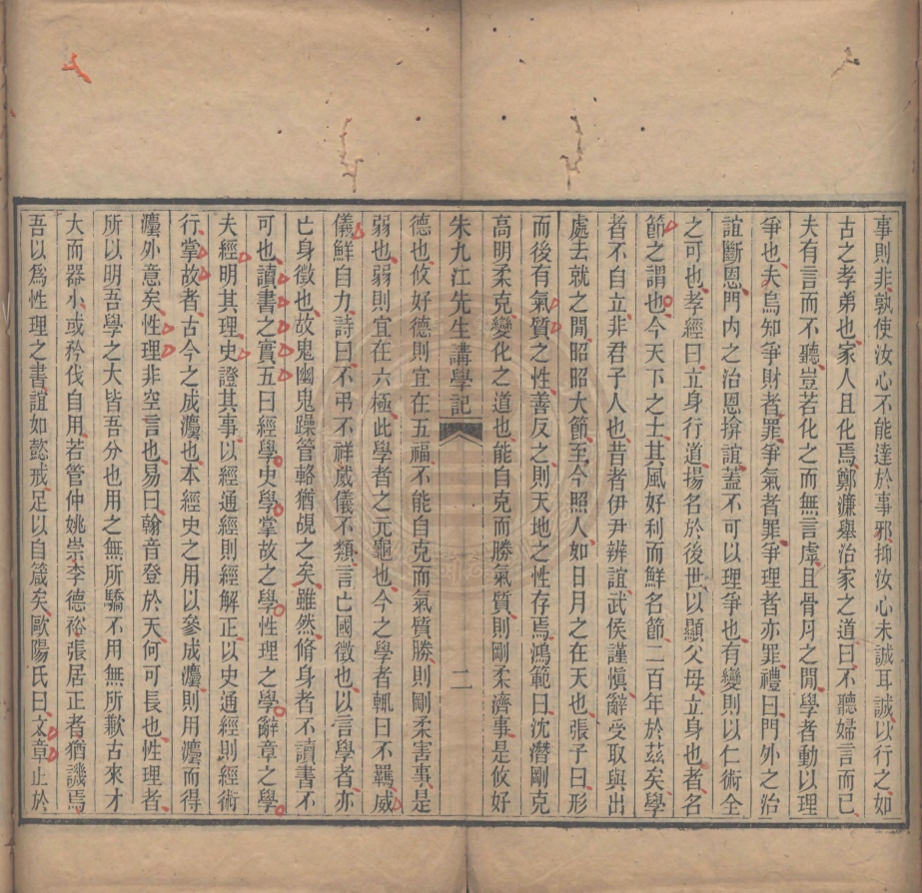 事則非孰使汝心不能達於事邪抑汝心未誠耳誠以行之如
古之孝弟也家人且化焉鄭濂舉治家之道曰不聽婦言而已
夫有言而不聽豈若化之而無言虖且骨月之閒學者動以理
爭也夫烏知爭財者罪爭氣者罪爭理者亦罪禮曰門外之治
誼斷恩門內之治恩揜誼蓋不可以理爭也有變則以仁術全
之可也孝經曰立身行道揚名於後世以顯父母立身也者名
節之謂也今天下之士其風好利而鮮名節二百年於茲矣學
者不自立非君子人也昔者伊尹辨誼武侯謹愼辭受取與出
處去就之閒昭昭大節至今照人如日月之在天也張子曰形
而後有氣質之性善反之則天地之性存焉鴻範曰沈潛剛克
高明柔克變化之道也能自克而勝氣質則剛柔濟事是攸好
朱九江先生講學記 二
德也攸好德則宜在五福不能自克而氣質勝則剛柔害事是
弱也弱則宜在六極此學者之元龜也今之學者輒曰不羈威
儀鮮自力詩曰不弔不祥威儀不類言亡國徵也以言學者亦
亡身徵也故鬼幽鬼躁管輅猶覘之矣雖然脩身者不讀書不
可也讀書之實五曰經學史學掌故之學性理之學辭章之學
夫經明其理史證其事以經通經則經解正以史通經則經術
行掌故者古今之成灋也本經史之用以參成灋則用灋而得
灋外意矣性理非空言也易曰翰音登於天何可長也性理者
所以明吾學之大皆吾分也用之無所驕不用無所歉古來才
大而器小或矜伐自用若管仲姚崇李德裕張居正者猶譏焉
吾以爲性理之書誼如懿戒足以自箴矣歐陽氏曰文章止於